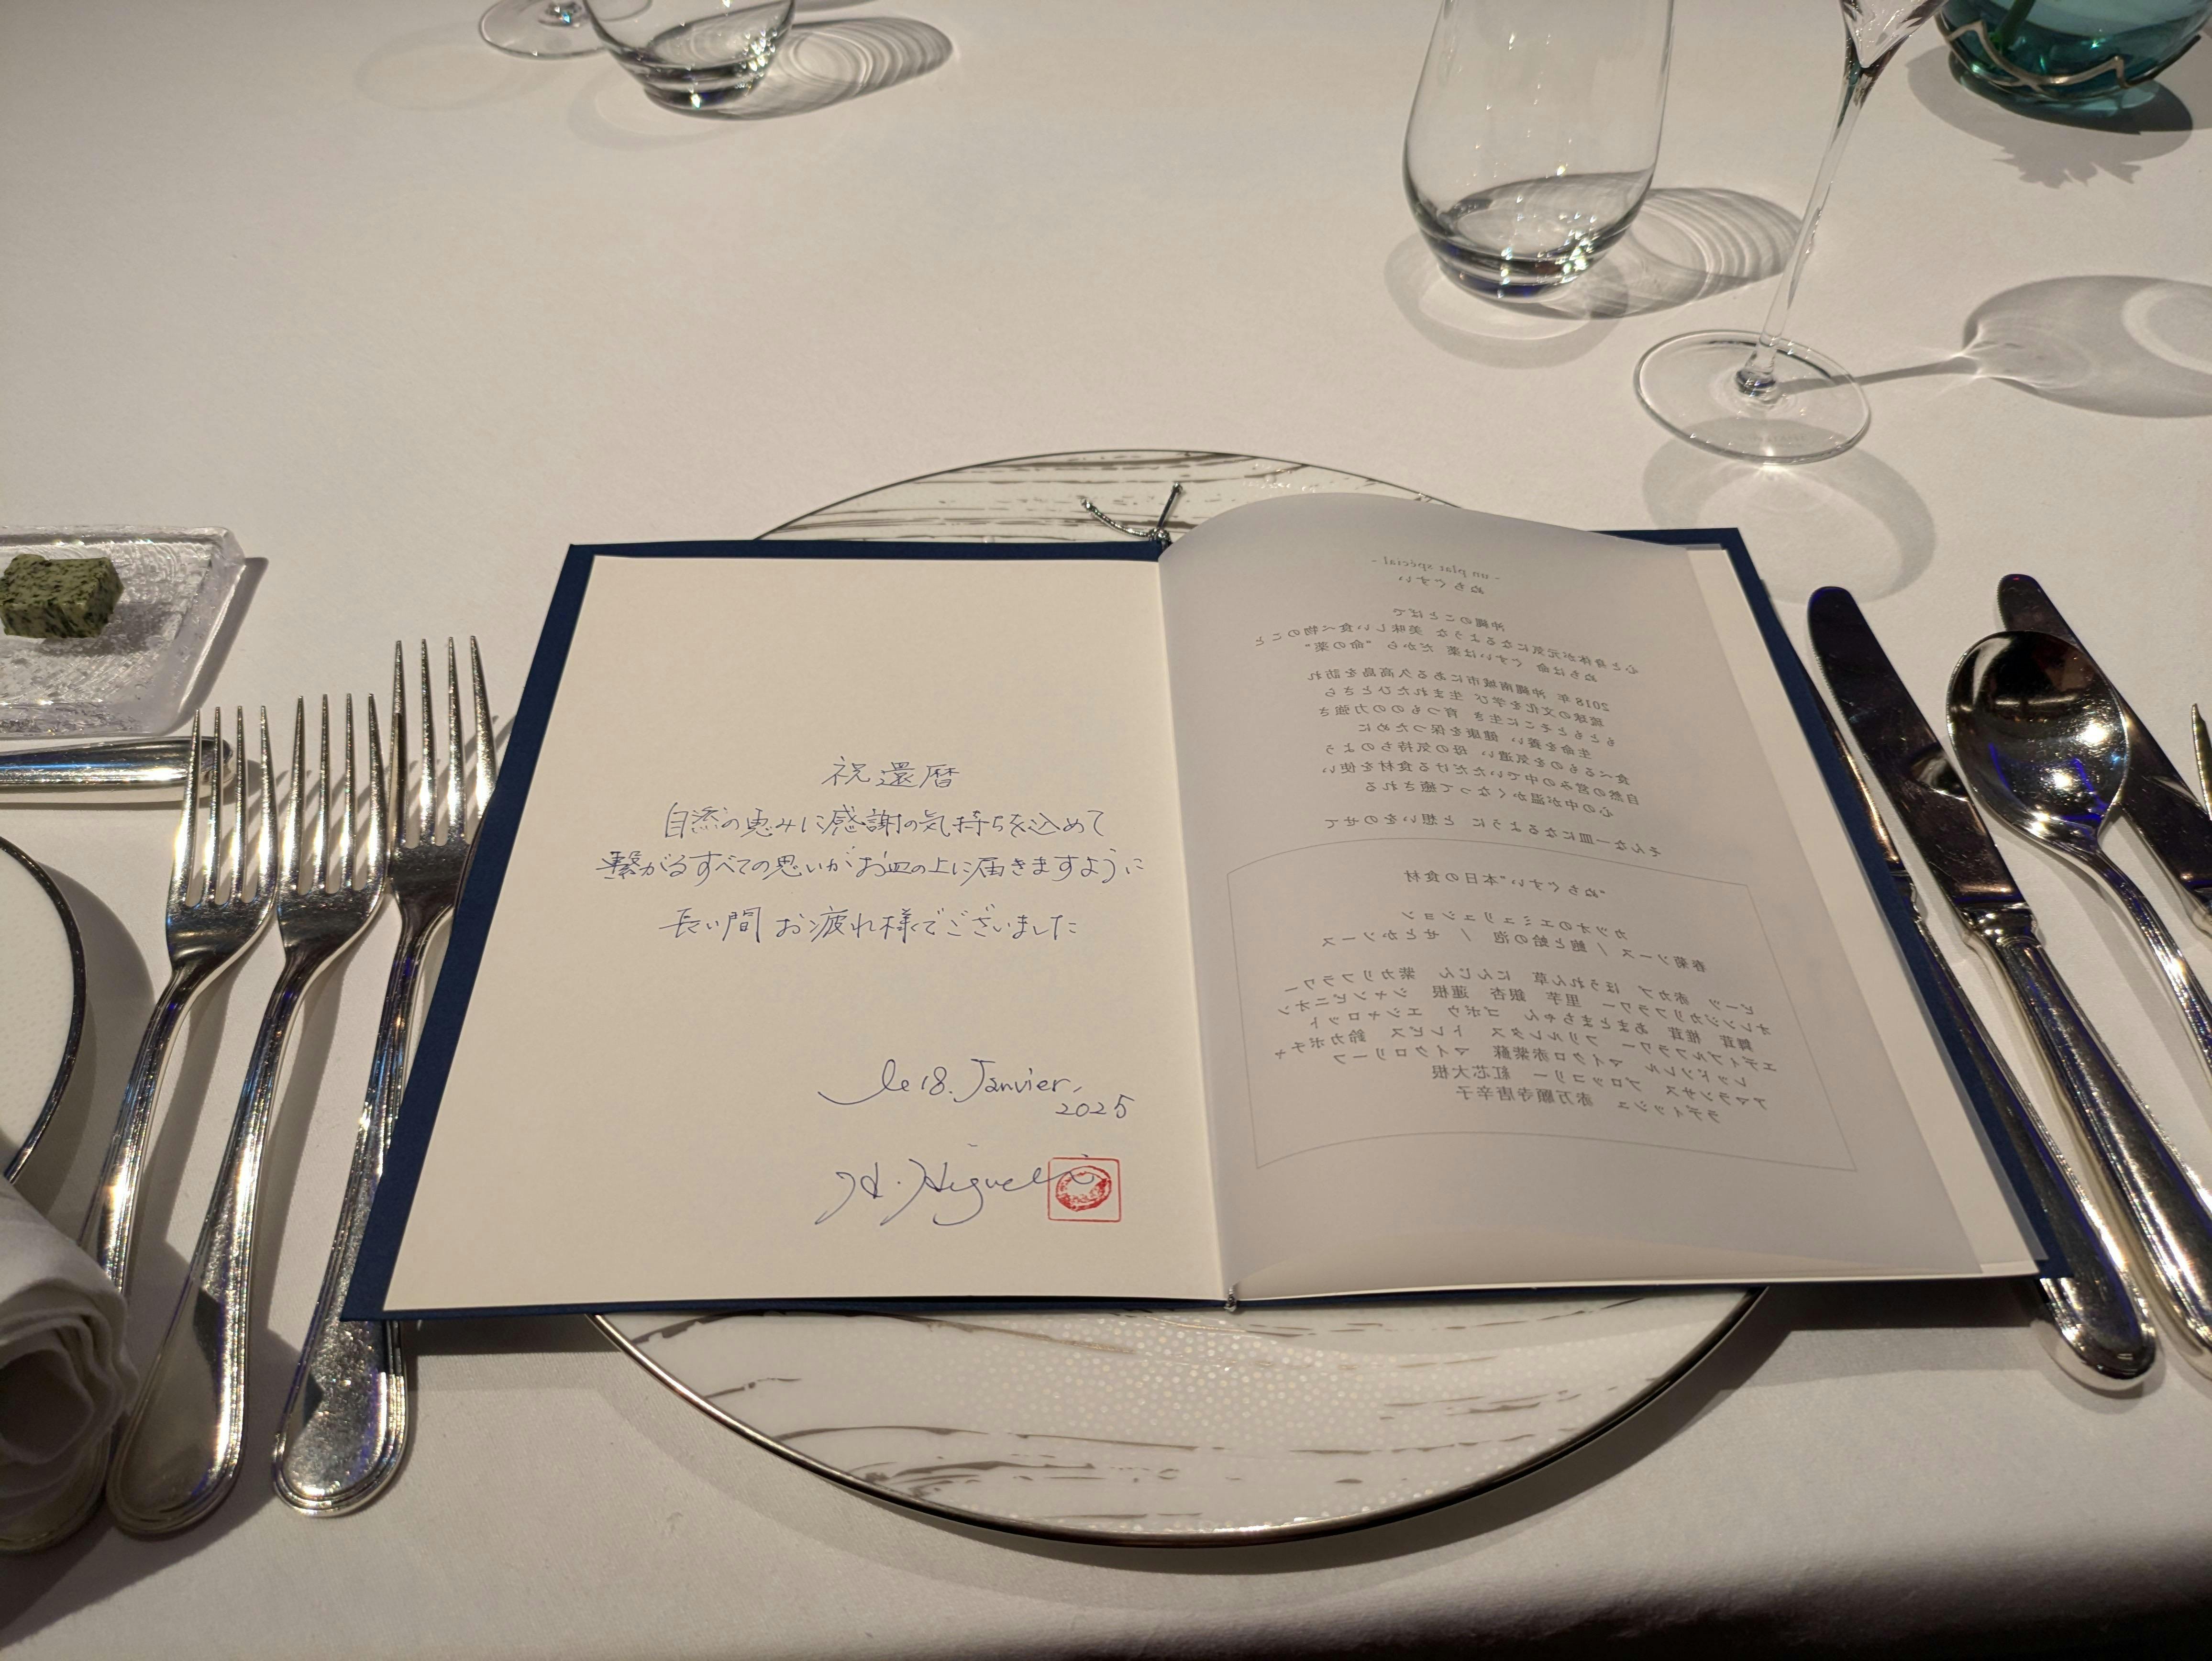 祝還暦
自然の恵みに感謝の気持ちを込めて
繋がるすべての思いがお皿の上に届きますように
長い間 お疲れ様でございました
le 18. Janvier,
2025
- un plat spécial -
ぬちぐすい
沖縄のことばで
心と身体が元気になるような 美味しい食べ物のこと
ぬちは命 ぐすいは薬 だから "命の薬"
2018年 沖縄南城市にある久高島を訪れ
琉球の文化を学び 生まれたひとさら
もともとそこに生き 育つものの力強さ
生命を養い 健康を保つために
食べるものを気遣い 母の気持ちのよう
自然の営みの中でいただける食材を使い
心の中が温かくなって癒される
そんな一皿になるように と想いをのせて
"ぬちぐすい"本日の食材
カツオのエミュリュション
春菊ソース / 鮑と蛤の泡 / せとかソース
ビーツ 赤カブ ほうれん草 にんじん 紫カリフラワー
オレンジカリフラワー 里芋 銀杏 蓮根 シャンピニオン
舞茸 椎茸 あまとまちゃん ゴボウ エシャロット
エディブルフラワー フリルレタス トレビス 鈴カボチャ
レッドソレル マイクロ赤紫蘇 マイクロリーフ
アマランサス ブロッコリー 紅芯大根
ラディッシュ 赤万願寺唐辛子